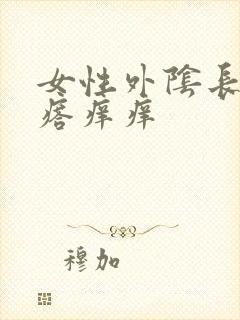 女性外陰長
瘩痒痒
穆加